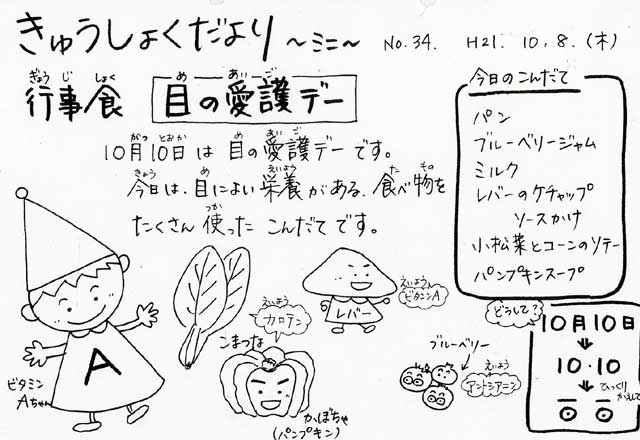 きゅうしょくだより 〜ミニ〜 No.34. H21. 10. 8. (木)
ぎょう じ しょく
行事食
め あい ご
目の愛護デー
がつ とおか め あい ご
10月10日は目の愛護デーです。
きょう め えいよう た もの
今日は、目によい栄養がある、食べ物を
つか
たくさん使ったこんだてです。
今日のこんだて
パン
ブルーベリージャム
ミルク
レバーのケチャップ
ソースかけ
小松菜とコーンのソテー
パンプキンスープ
A
ビタミン
Aちゃん
こまつな
えいよう
カロテン
かぼちゃ
(パンプキン)
レバー
えいよう
ビタミンA
ブルーベリー
えいよう
アントシアニン
どうして?
10月10日
10・10
ひっくり
かえして